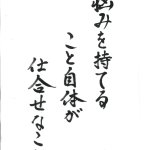 悩みを持てる
こと自体が
仕合せなこ